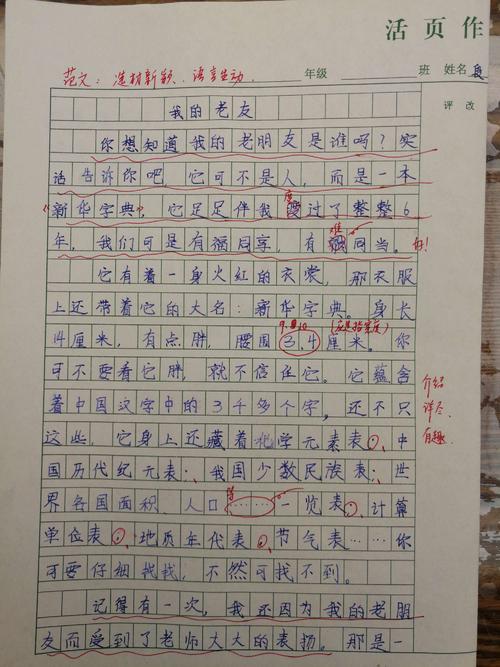 活页作
范文：选材新颖、语言生动.
年级 班 姓名
评改
我的老友
你想知道我的老朋友是谁吗？实
话告诉你吧，它可不是人，而是一本
“新华字典”，它足足伴我度过了整整6
年，我们可是有福同享，有难同当。
它有着一身火红的衣裳，那衣服
上还带着它的大名：新华字典。身长
14厘米，有点胖，腰围3.4厘米。你
可不要看它胖，就不信任它。它蕴含
着中国汉字中的3千多个字，还不只
这些，它身上还藏着化学元素表，中
国历代纪元表；我国少数民族表；世
界各国面积、人口……一览表，计算
单位表，地质年代表，节气表……你
可要仔细找找，不然可找不到。
介绍
详尽
有趣
记得有一次，我还因为我的老朋
友而受到了老师大大的表扬。那是一